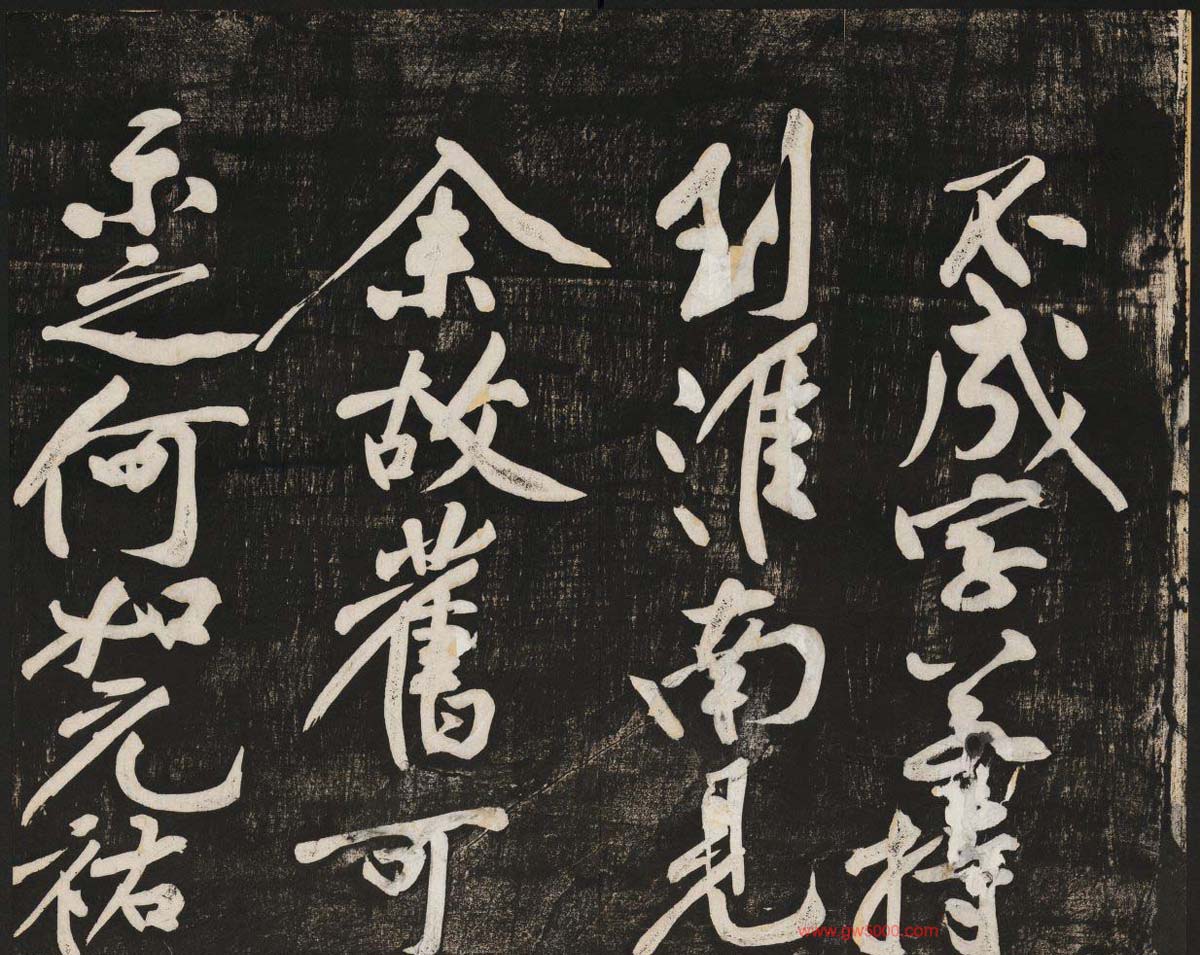 不成字若持
到淮南見
余故舊可
示之何如元祐
www.gw5000.com